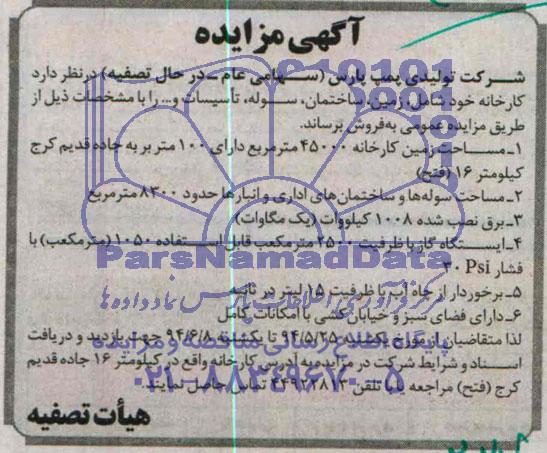 آگهی مزایده
شرکت تولیدی پمپ پارس (سهامی عام - در حال تصفیه) درنظر دارد
کارخانه خود شامل: زمین، ساختمان، سوله، تأسیسات و... را با مشخصات ذیل از
طریق مزایده عمومی به‌فروش برساند.
۱ـ مساحت زمین کارخانه ۴۵۰۰۰ مترمربع دارای ۱۰۰ متر بر به جاده قدیم کرج
کیلومتر ۱۶ (فتح)
۲ـ مساحت سوله‌ها و ساختمان‌های اداری و انبارها حدود ۸۳۰۰ مترمربع
۳ـ برق نصب شده ۱۰۰۸ کیلووات (یک مگاوات)
۴ـ ایستگاه گاز با ظرفیت ۲۵۰۰ مترمکعب قابل استفاده ۱۰۵۰ (مترمکعب) با
فشار ۳۰ Psi
۵ـ برخوردار از چاه آب با ظرفیت ۱۵ لیتر در ثانیه
۶ـ دارای فضای سبز و خیابان‌کشی با امکانات کامل
لذا متقاضیان از مورخ یکشنبه ۹۴/۵/۲۵ تا یکشنبه ۹۴/۶/۸ جهت بازدید و دریافت
اسناد و شرایط شرکت در مزایده به آدرس کارخانه واقع در کیلومتر ۱۶ جاده قدیم
کرج (فتح) مراجعه یا با تلفن ۴۴۹۲۲۸۱۳ تماس حاصل نمایند.
هیأت تصفیه
ParsNamadData
۰۲۱-۸۸۳۴۹۶۷۰-۵